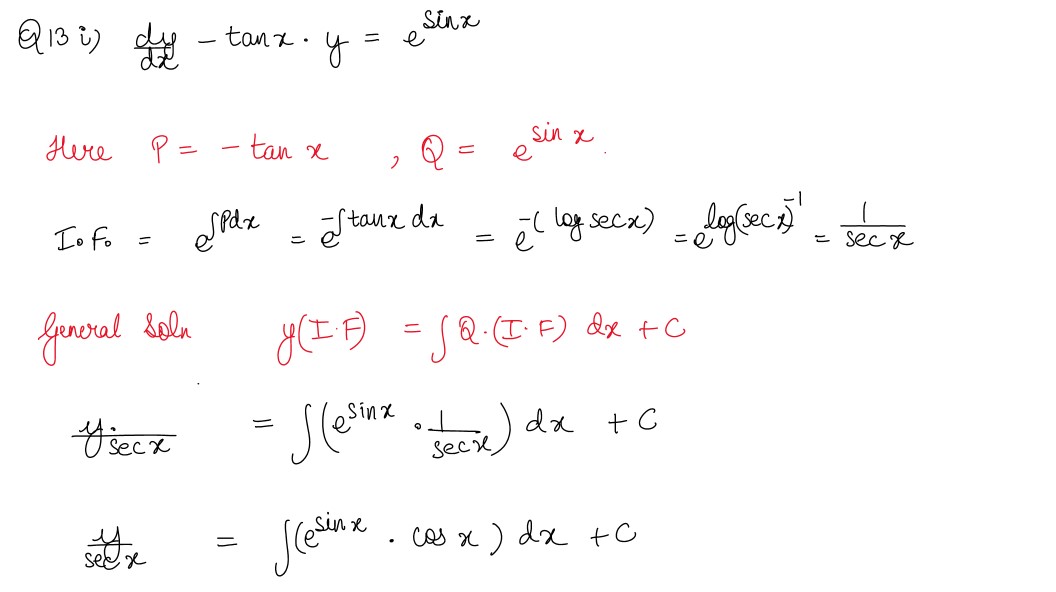 Q13 i) dy/dx - tan x · y = e^sin x
Here P = - tan x , Q = e^sin x.
I.F. = e^∫Pdx = e^-∫tan x dx = e^-(log sec x) = e^log(sec x)^-1 = 1/sec x
General Soln y(I·F) = ∫Q·(I·F) dx + C
y·/sec x = ∫(e^sin x · 1/sec x) dx + C
y/sec x = ∫(e^sin x · cos x) dx + C